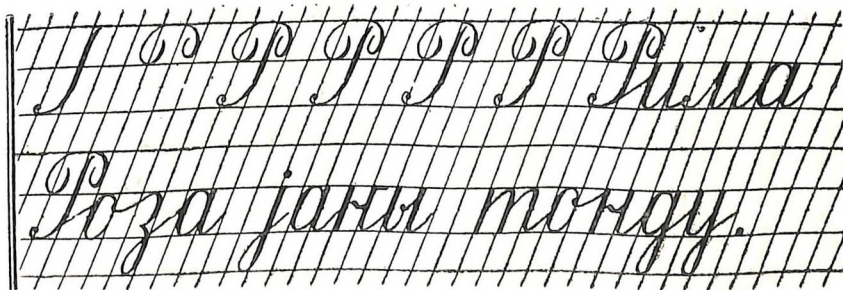 Р Р Р Р Рима
Роза јаны тонду.